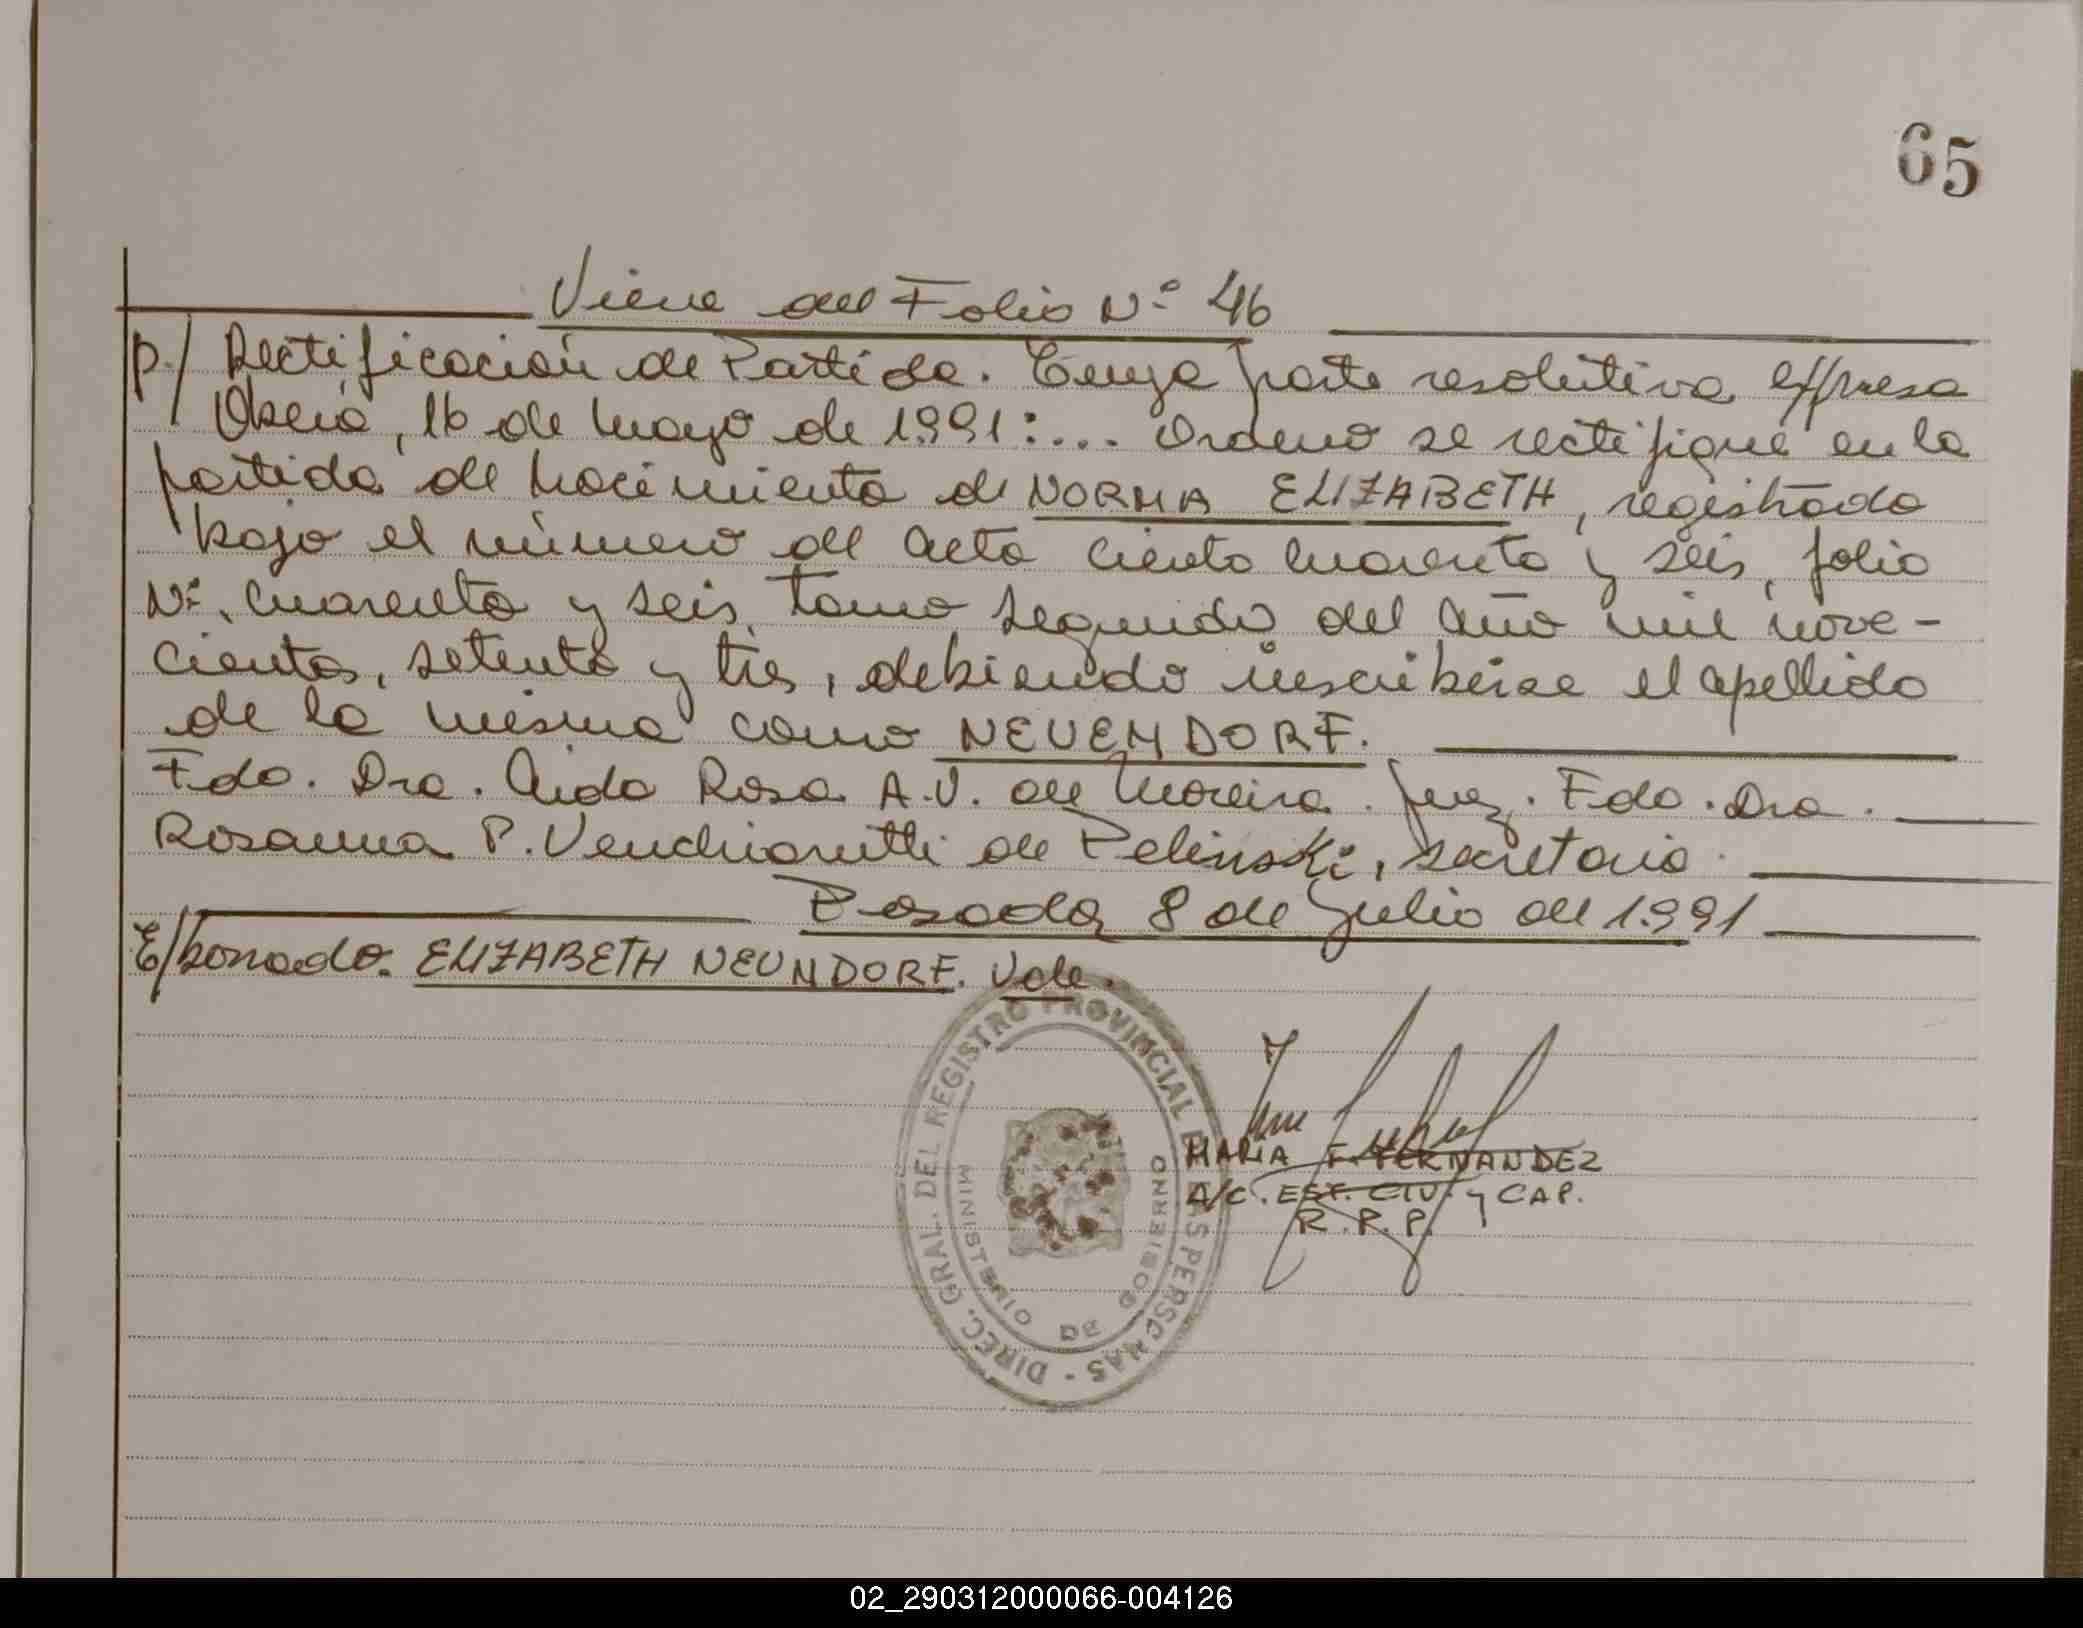 65
Viene del Folio Nº 46
p./ Rectificación de Partida. Cuya parte resolutiva expresa
Oberá, 16 de Mayo de 1991:... Ordeno se rectifique en la
partida de nacimiento de NORMA ELIZABETH, registrada
bajo el número de acta ciento cuarenta y seis, folio
Nº. cuarenta y seis, tomo segundo del año mil nove-
cientos, setenta y tres, debiendo inscribirse el apellido
de la misma como NEUENDORF.
Fdo. Dra. Aida Rosa A.V. de Moreira. Juez. Fdo. Dra.
Rosanna P. Venchiarutti de Pelinski, secretaria.
Posadas 8 de Julio de 1.991
E/borrado. ELIZABETH NEUNDORF. Vale.
DIREC. GRAL. DEL REGISTRO PROVINCIAL DE LAS PERSONAS -
MINISTERIO DE GOBIERNO
MARIA F. FERNANDEZ
A/C. EST. CIV. y CAP.
R.P.P.
02_290312000066-004126